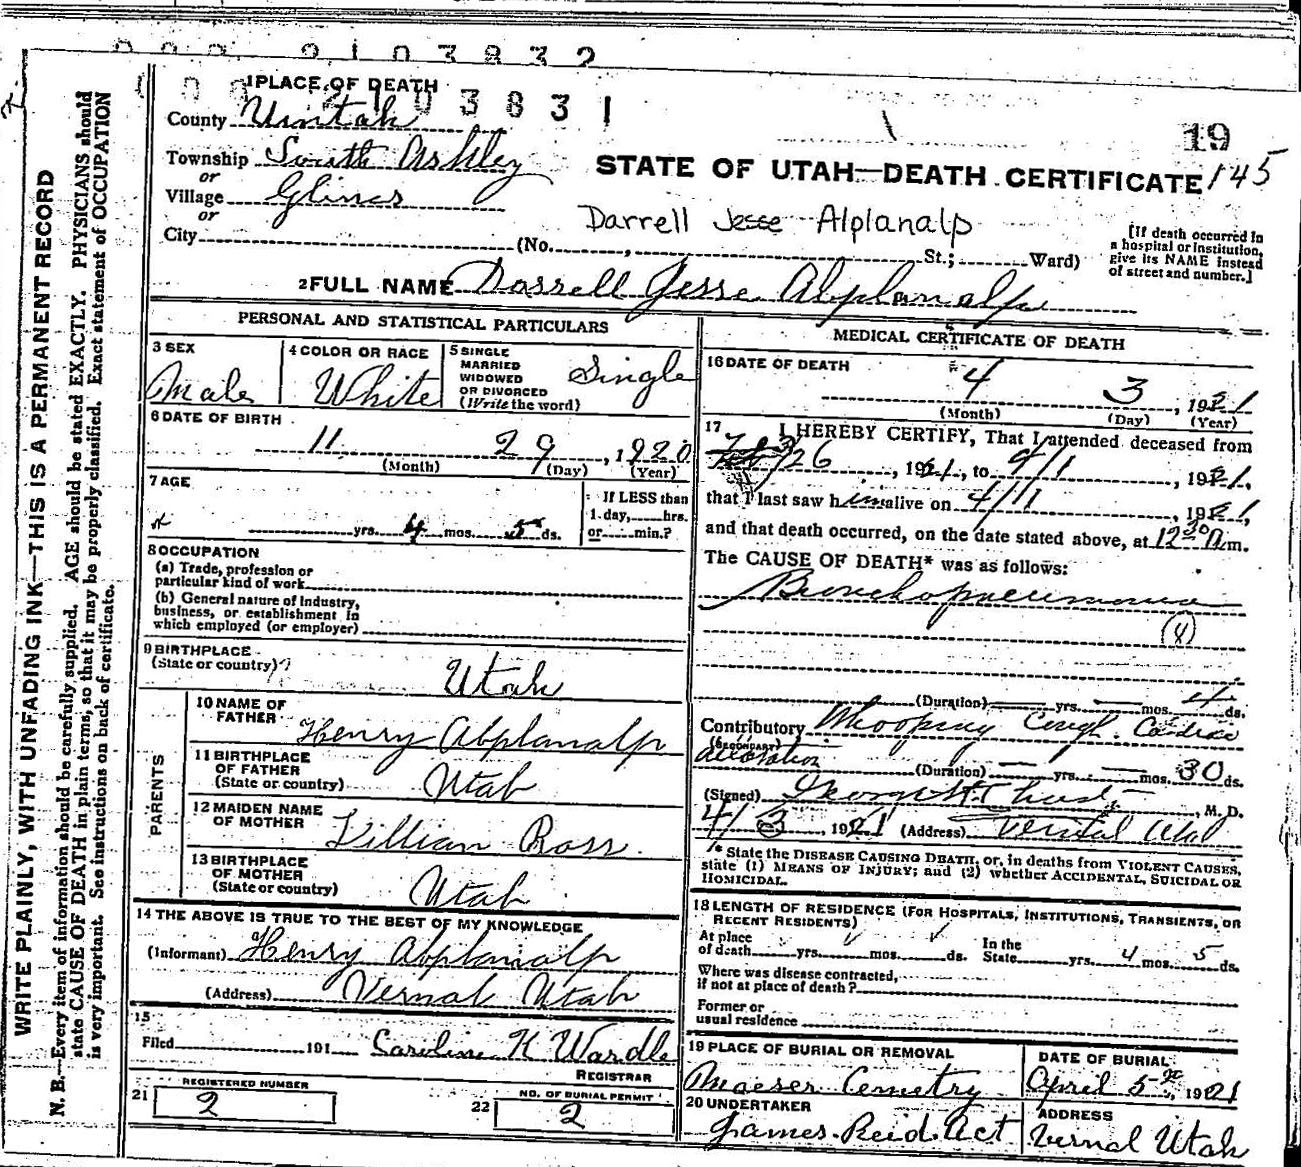 000 2103832
1 PLACE OF DEATH
00 2103831
County Uintah
19
Township South Ashley
STATE OF UTAH—DEATH CERTIFICATE 145
or
Village Glines
or
Darrell Jesse Alplanalp
City (No. , St.; Ward)
[If death occurred in
a hospital or institution,
give its NAME instead
of street and number.]
2 FULL NAME Darrell Jesse Abplanalp
PERSONAL AND STATISTICAL PARTICULARS
3 SEX
Male
4 COLOR OR RACE
White
5 SINGLE
MARRIED
WIDOWED
OR DIVORCED
(Write the word)
Single
6 DATE OF BIRTH
11 29, 1920
(Month) (Day) (Year)
7 AGE
yrs. 4 mos. 5 ds.
If LESS than
1 day, hrs.
or min.?
8 OCCUPATION
(a) Trade, profession or
particular kind of work
(b) General nature of industry,
business, or establishment in
which employed (or employer)
9 BIRTHPLACE
(State or country)
Utah
PARENTS
10 NAME OF
FATHER
Henry Abplanalp
11 BIRTHPLACE
OF FATHER
(State or country)
Utah
12 MAIDEN NAME
OF MOTHER
Lillian Ross.
13 BIRTHPLACE
OF MOTHER
(State or country)
Utah
14 THE ABOVE IS TRUE TO THE BEST OF MY KNOWLEDGE
(Informant) Henry Abplanalp
(Address) Vernal Utah
15
Filed 191 Caroline K Wardle
REGISTRAR
21
REGISTERED NUMBER
2
22
NO. OF BURIAL PERMIT
2
MEDICAL CERTIFICATE OF DEATH
16 DATE OF DEATH
4 3, 1921
(Month) (Day) (Year)
17 I HEREBY CERTIFY, That I attended deceased from
/26, 1921, to 4/1, 1921,
that I last saw him alive on 4/1, 1921,
and that death occurred, on the date stated above, at 12 30 m.
The CAUSE OF DEATH* was as follows:
Bronchopneumonia
(4)
(Duration) yrs. mos. 4 ds.
Contributory Whooping Cough. Cardiac
(SECONDARY)
(Duration) yrs. mos. 30 ds.
(Signed) M. D.
4/3, 1921 (Address) Vernal Utah
* State the DISEASE CAUSING DEATH, or, in deaths from VIOLENT CAUSES,
state (1) MEANS OF INJURY; and (2) whether ACCIDENTAL, SUICIDAL OR
HOMICIDAL.
18 LENGTH OF RESIDENCE (FOR HOSPITALS, INSTITUTIONS, TRANSIENTS, OR
RECENT RESIDENTS)
At place
of death yrs. mos. ds.
In the
State yrs. 4 mos. 5 ds.
Where was disease contracted,
if not at place of death?
Former or
usual residence
19 PLACE OF BURIAL OR REMOVAL
Maeser Cemetry
DATE OF BURIAL
April 5, 1921
20 UNDERTAKER
James Reid Act
ADDRESS
Vernal Utah
WRITE PLAINLY, WITH UNFADING INK—THIS IS A PERMANENT RECORD
N. B.—Every item of information should be carefully supplied. AGE should be stated EXACTLY. PHYSICIANS should
state CAUSE OF DEATH in plain terms, so that it may be properly classified. Exact statement of OCCUPATION
is very important. See instructions on back of certificate.